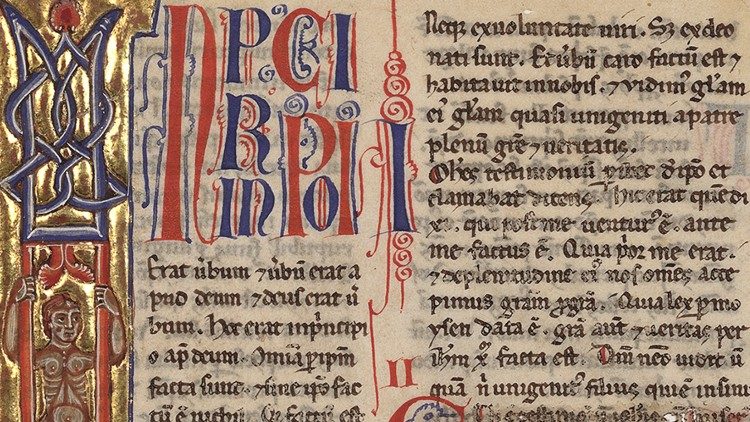 N P CI
R PI
IN O
Erat ūbum ⁊ ūbū erat a
pud deum ⁊ deus erat ū
bum. Hoc erat inp̃ncipi
o ap̄ deum. Om̄ia p̱ ip̄m
facta sunt. ⁊ sine ip̄o fac
tū ē nichil. factū est
I
II
Neq; exuoluntate uiri. Sꝫ exdeo
nati sunt. Et ūbū caro factum est ⁊
habitauit innobis. ⁊ vidimꝰ gl̄am
eiꝰ gl̄am quasi unigeniti apatre
plenum gr̄e ⁊ ueritatis.
Ioh̄es testimoniū ꝑhibet dip̄o et
clamabat dicens. hic erat quē di
xi. qui post me uenturꝰ ē. ante
me factus ē. Quia p̃or me erat.
⁊ deplenitudine eiꝰ nos om̄es acce
pimus gr̄am ꝓgr̄a. Quia lex ꝑmo
ysen data ē. gr̄a aut̄ ⁊ ueritas per
ih̄m xp̄m facta est. Dm̄ nemo uidit ū
quā nͥ unigenitꝰ filius qui ē insinu